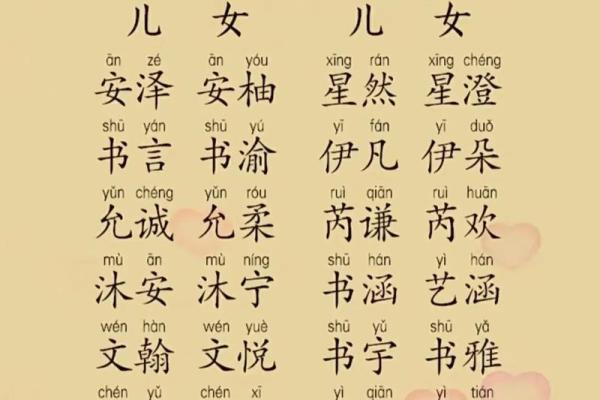 儿 女 儿 女
ān zé ān yóu xīng rán xīng chéng
安泽 安柚 星然 星澄
shū yán shū yú yī fán yī duǒ
书言 书渝 伊凡 伊朵
yǔn chéng yǔn róu ruì qiān ruì huān
允诚 允柔 芮谦 芮欢
mù ān mù níng shū hán yì hán
沐安 沐宁 书涵 艺涵
wén hàn wén yuè shū yǔ shū yǎ
文翰 文悦 书宇 书雅
chén yǔ chén xī yì qiān yì tián